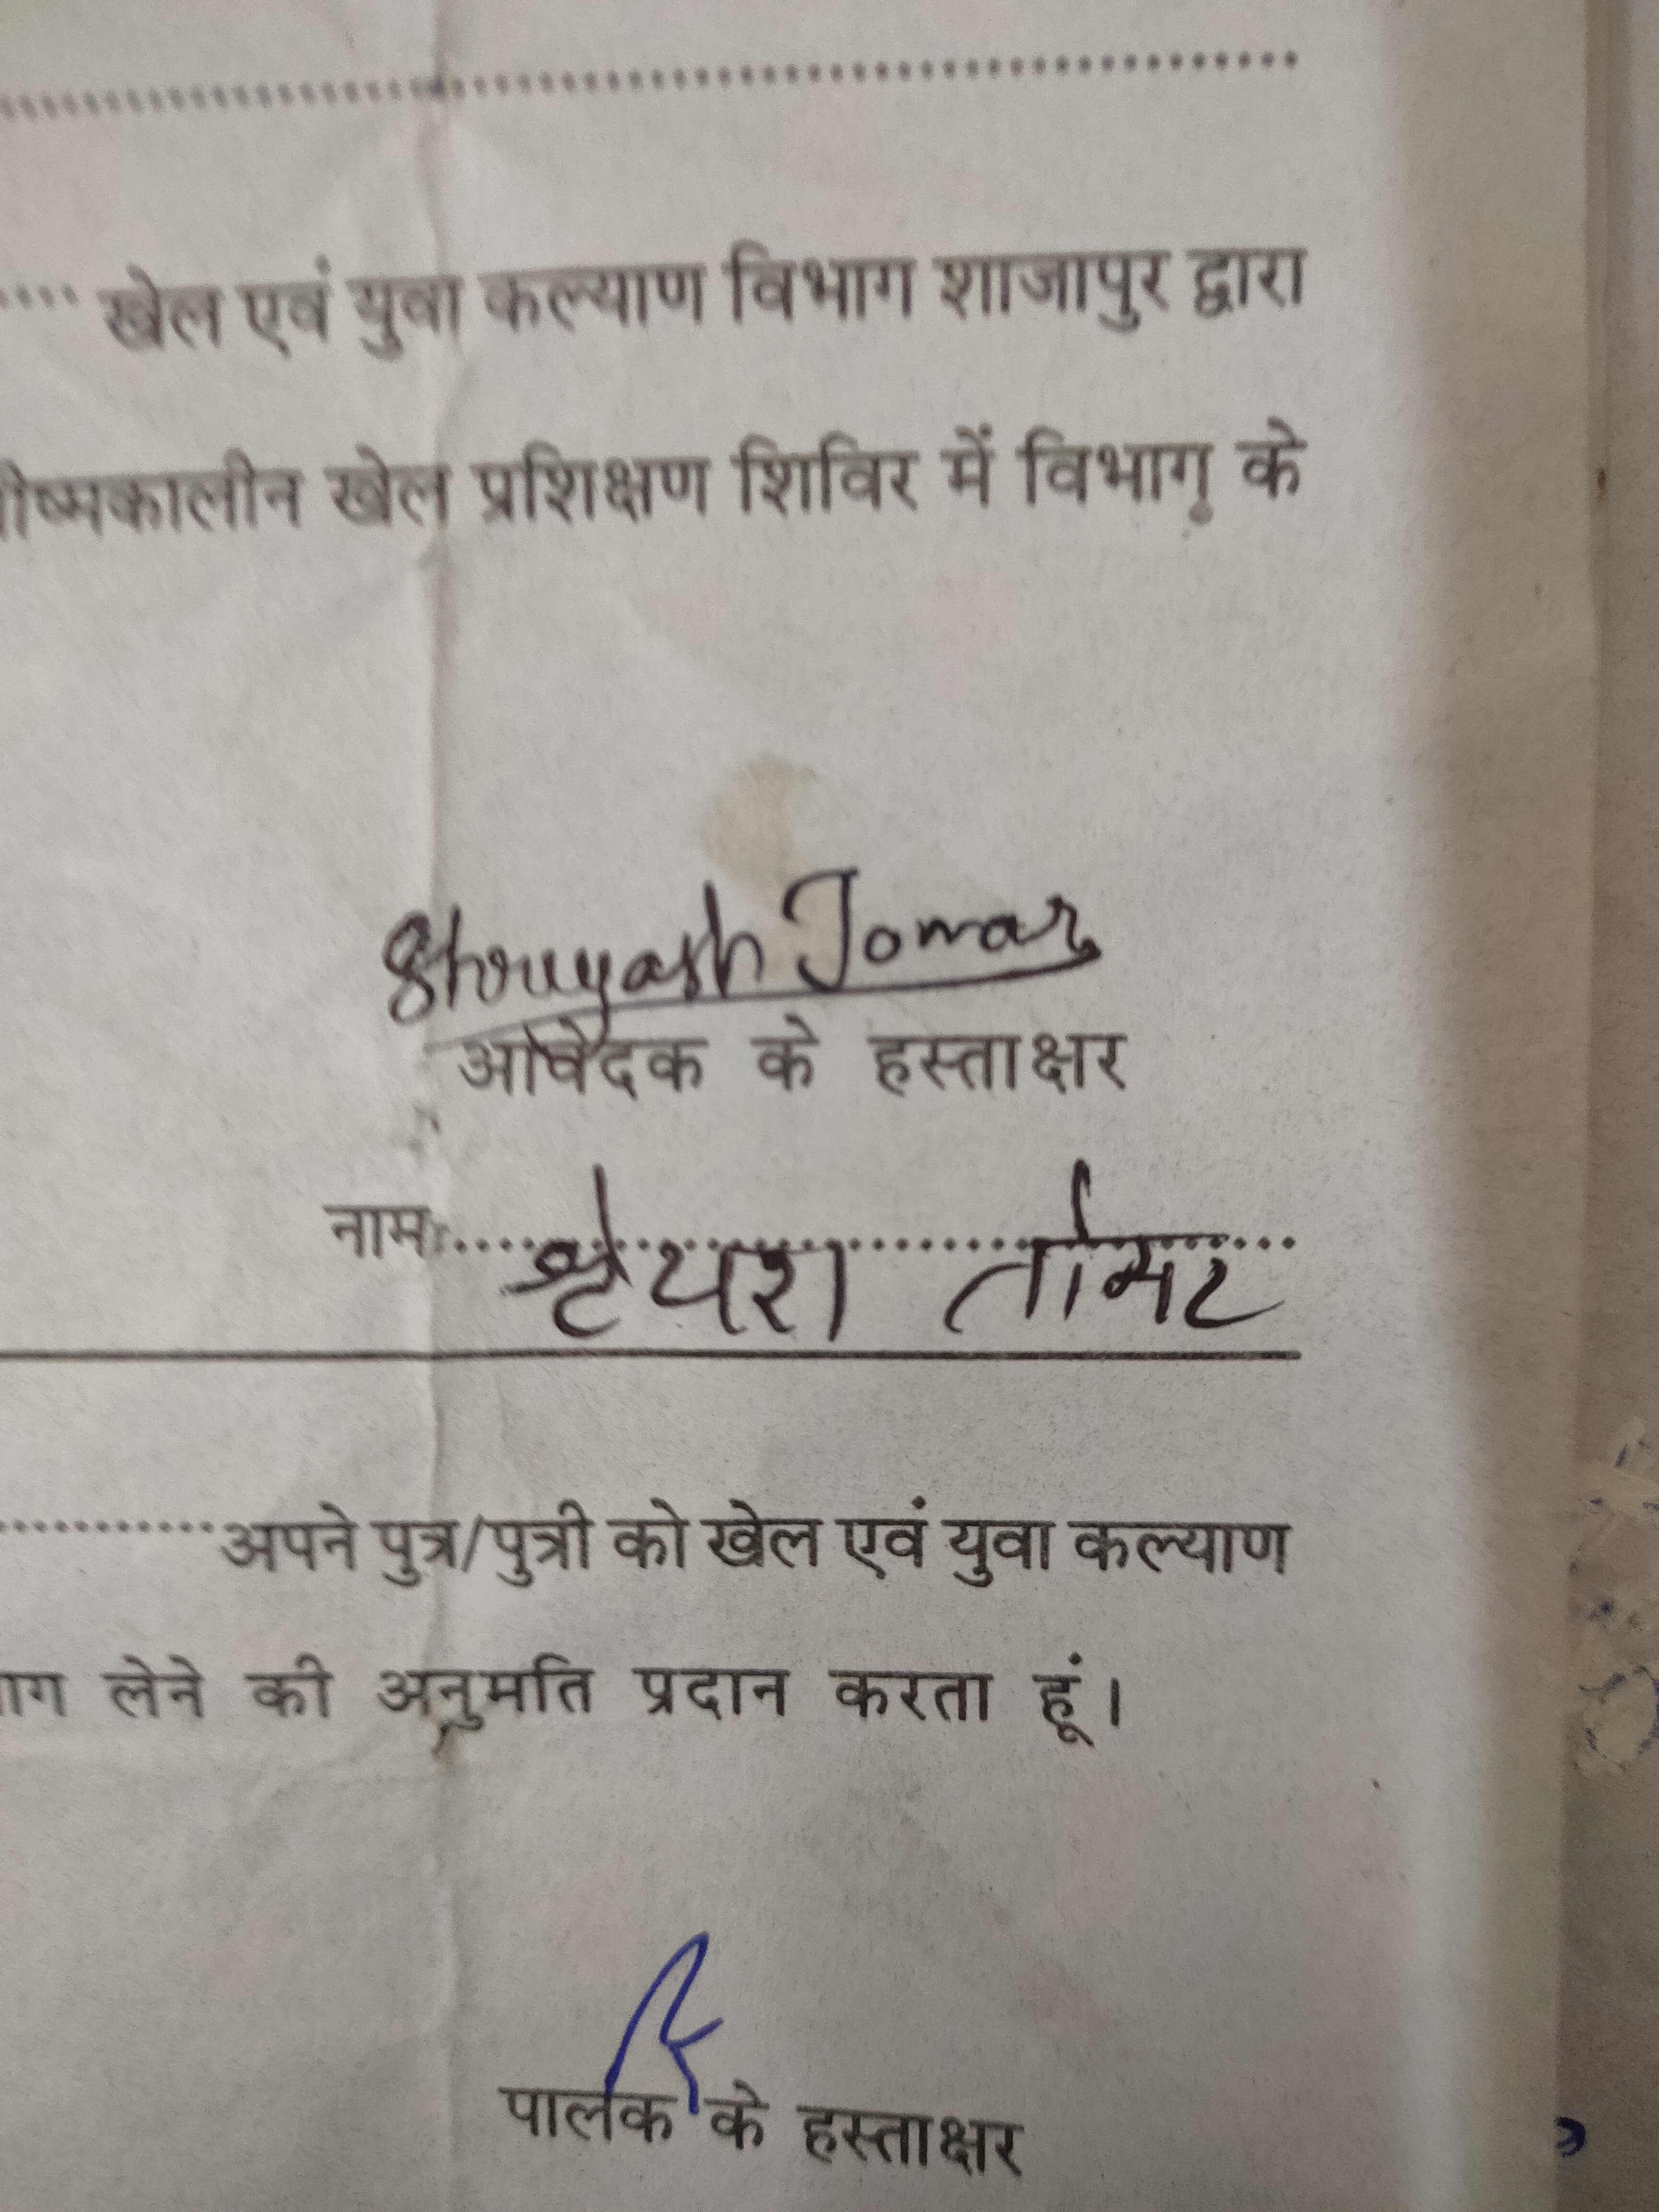 खेल एवं युवा कल्याण विभाग शाजापुर द्वारा
ीष्मकालीन खेल प्रशिक्षण शिविर में विभाग के
Shreyash Tomar
आवेदक के हस्ताक्षर
नामः श्रेयश तोमर
अपने पुत्र/पुत्री को खेल एवं युवा कल्याण
ाग लेने की अनुमति प्रदान करता हूं।
पालक के हस्ताक्षर